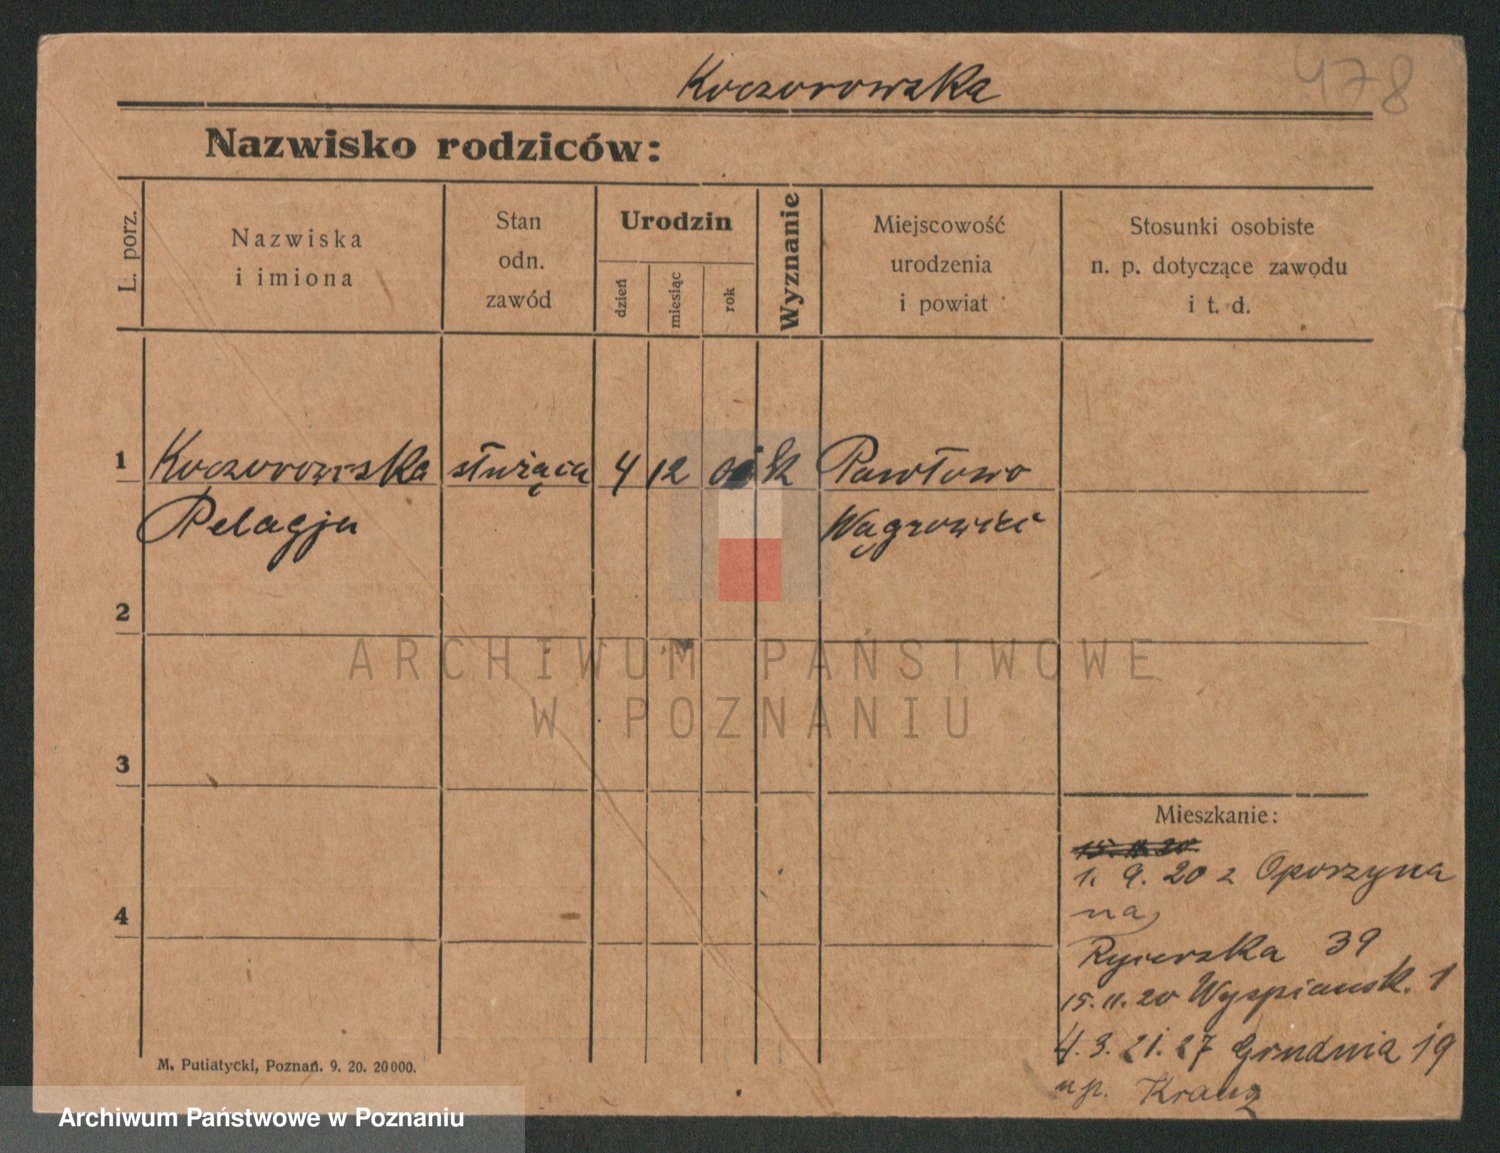 Koczorowska
478
Nazwisko rodziców:
L. porz.
Nazwiska
i imiona
Stan
odn.
zawód
Urodzin
dzień
miesiąc
rok
Wyznanie
Miejscowość
urodzenia
i powiat
Stosunki osobiste
n. p. dotyczące zawodu
i t. d.
1 Koczorowska służąca 4 12 k Pawłowo
Pelagja Wągrowiec
2
ARCHIWUM PAŃSTWOWE
W POZNANIU
3
Mieszkanie:
15.11.20
1. 9. 20 z Oporzyna
na
4
Rycerska 39
15.11.20 Wyspiansk. 1
4.3.21. 27 Grudnia 19
up. Kranz
M. Putiatycki, Poznań. 9. 20. 20000.
Archiwum Państwowe w Poznaniu